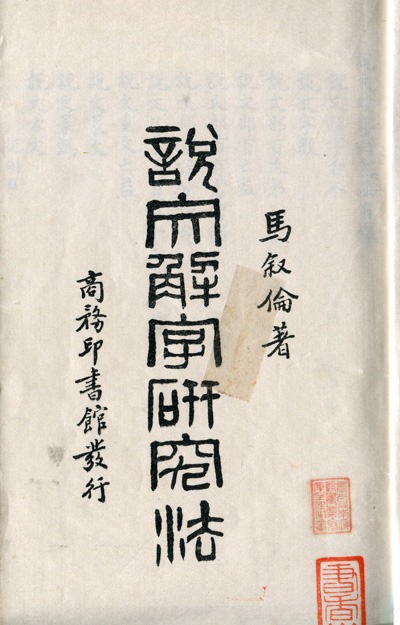 馬叙倫著
說文解字研究法
商務印書館發行